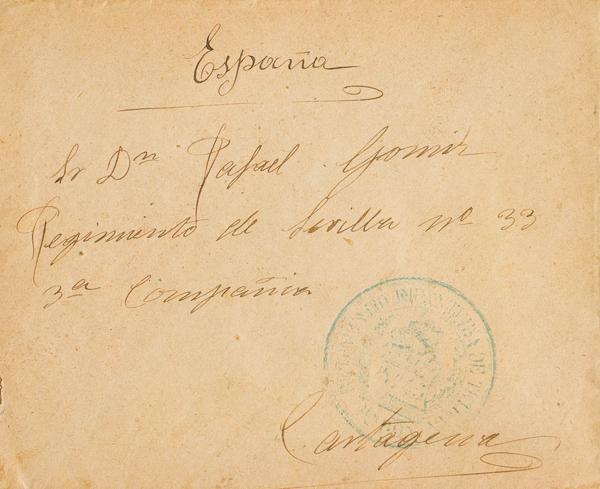 España
Sr Dn Rafael Gomir
Regimiento de Sevilla nº 33
3ª Compañia
Cartagena